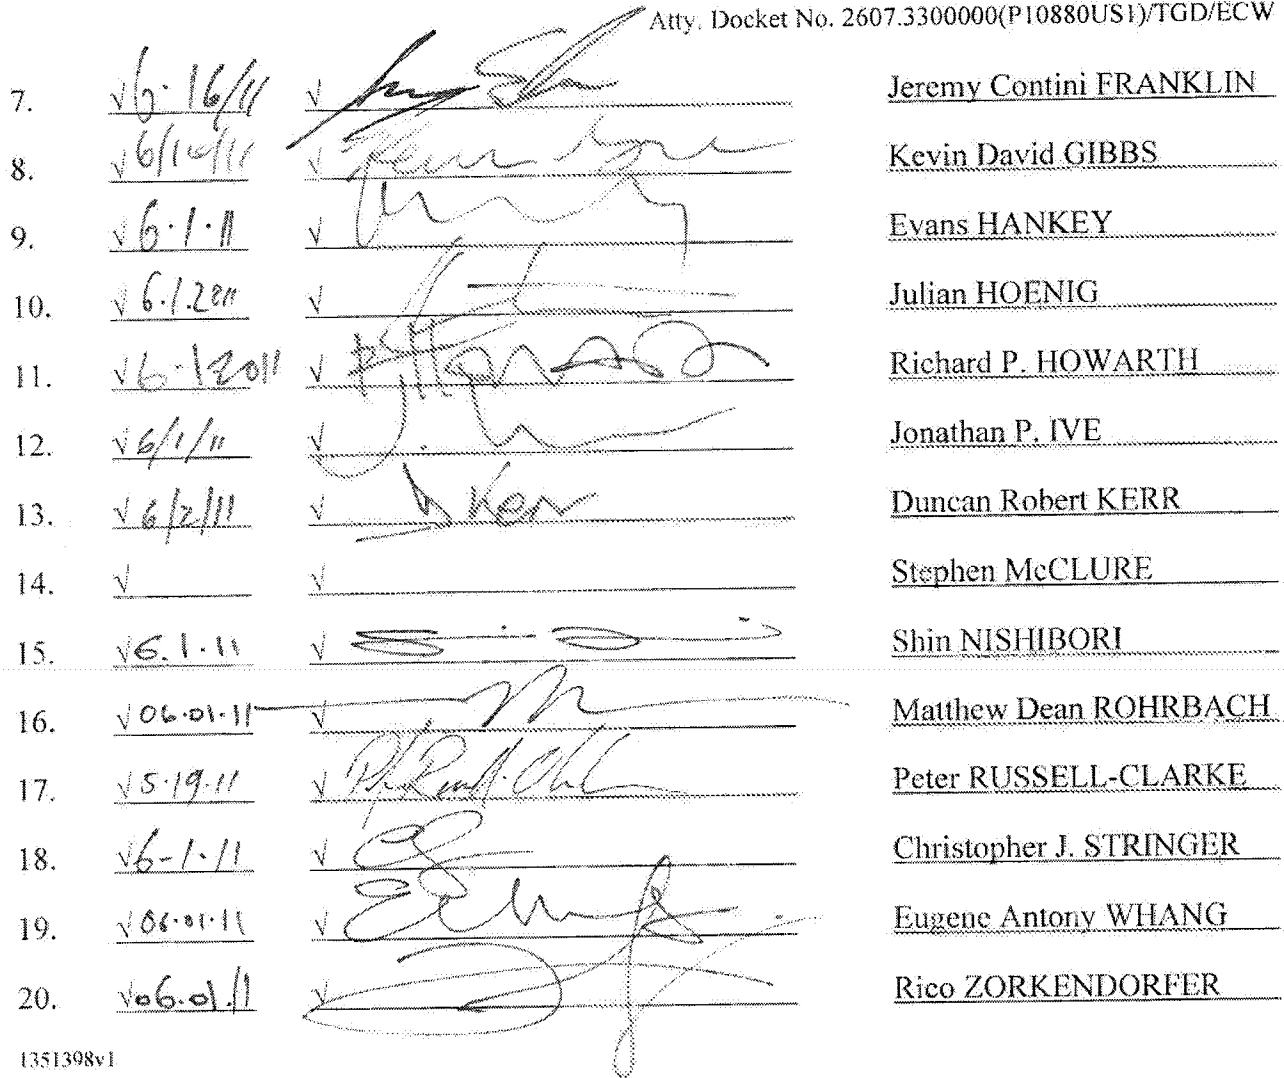 Atty. Docket No. 2607.3300000(P10880US1)/TGD/ECW
7. √ 6·16/11 √ Jeremy Contini FRANKLIN
8. √ 6/16/11 √ Kevin David GIBBS
9. √ 6·1·11 √ Evans HANKEY
10. √ 6.1.2011 √ Julian HOENIG
11. √ 6·1·2011 √ Richard P. HOWARTH
12. √ 6/1/11 √ Jonathan P. IVE
13. √ 6/2/11 √ D Kerr Duncan Robert KERR
14. √ √ Stephen McCLURE
15. √ 6.1.11 √ Shin NISHIBORI
16. √ 06·01·11 √ Matthew Dean ROHRBACH
17. √ 5·19·11 √ Peter RUSSELL-CLARKE
18. √ 6-1·11 √ Christopher J. STRINGER
19. √ 06·01·11 √ Eugene Antony WHANG
20. √ 06.01.11 √ Rico ZORKENDORFER
1351398v1